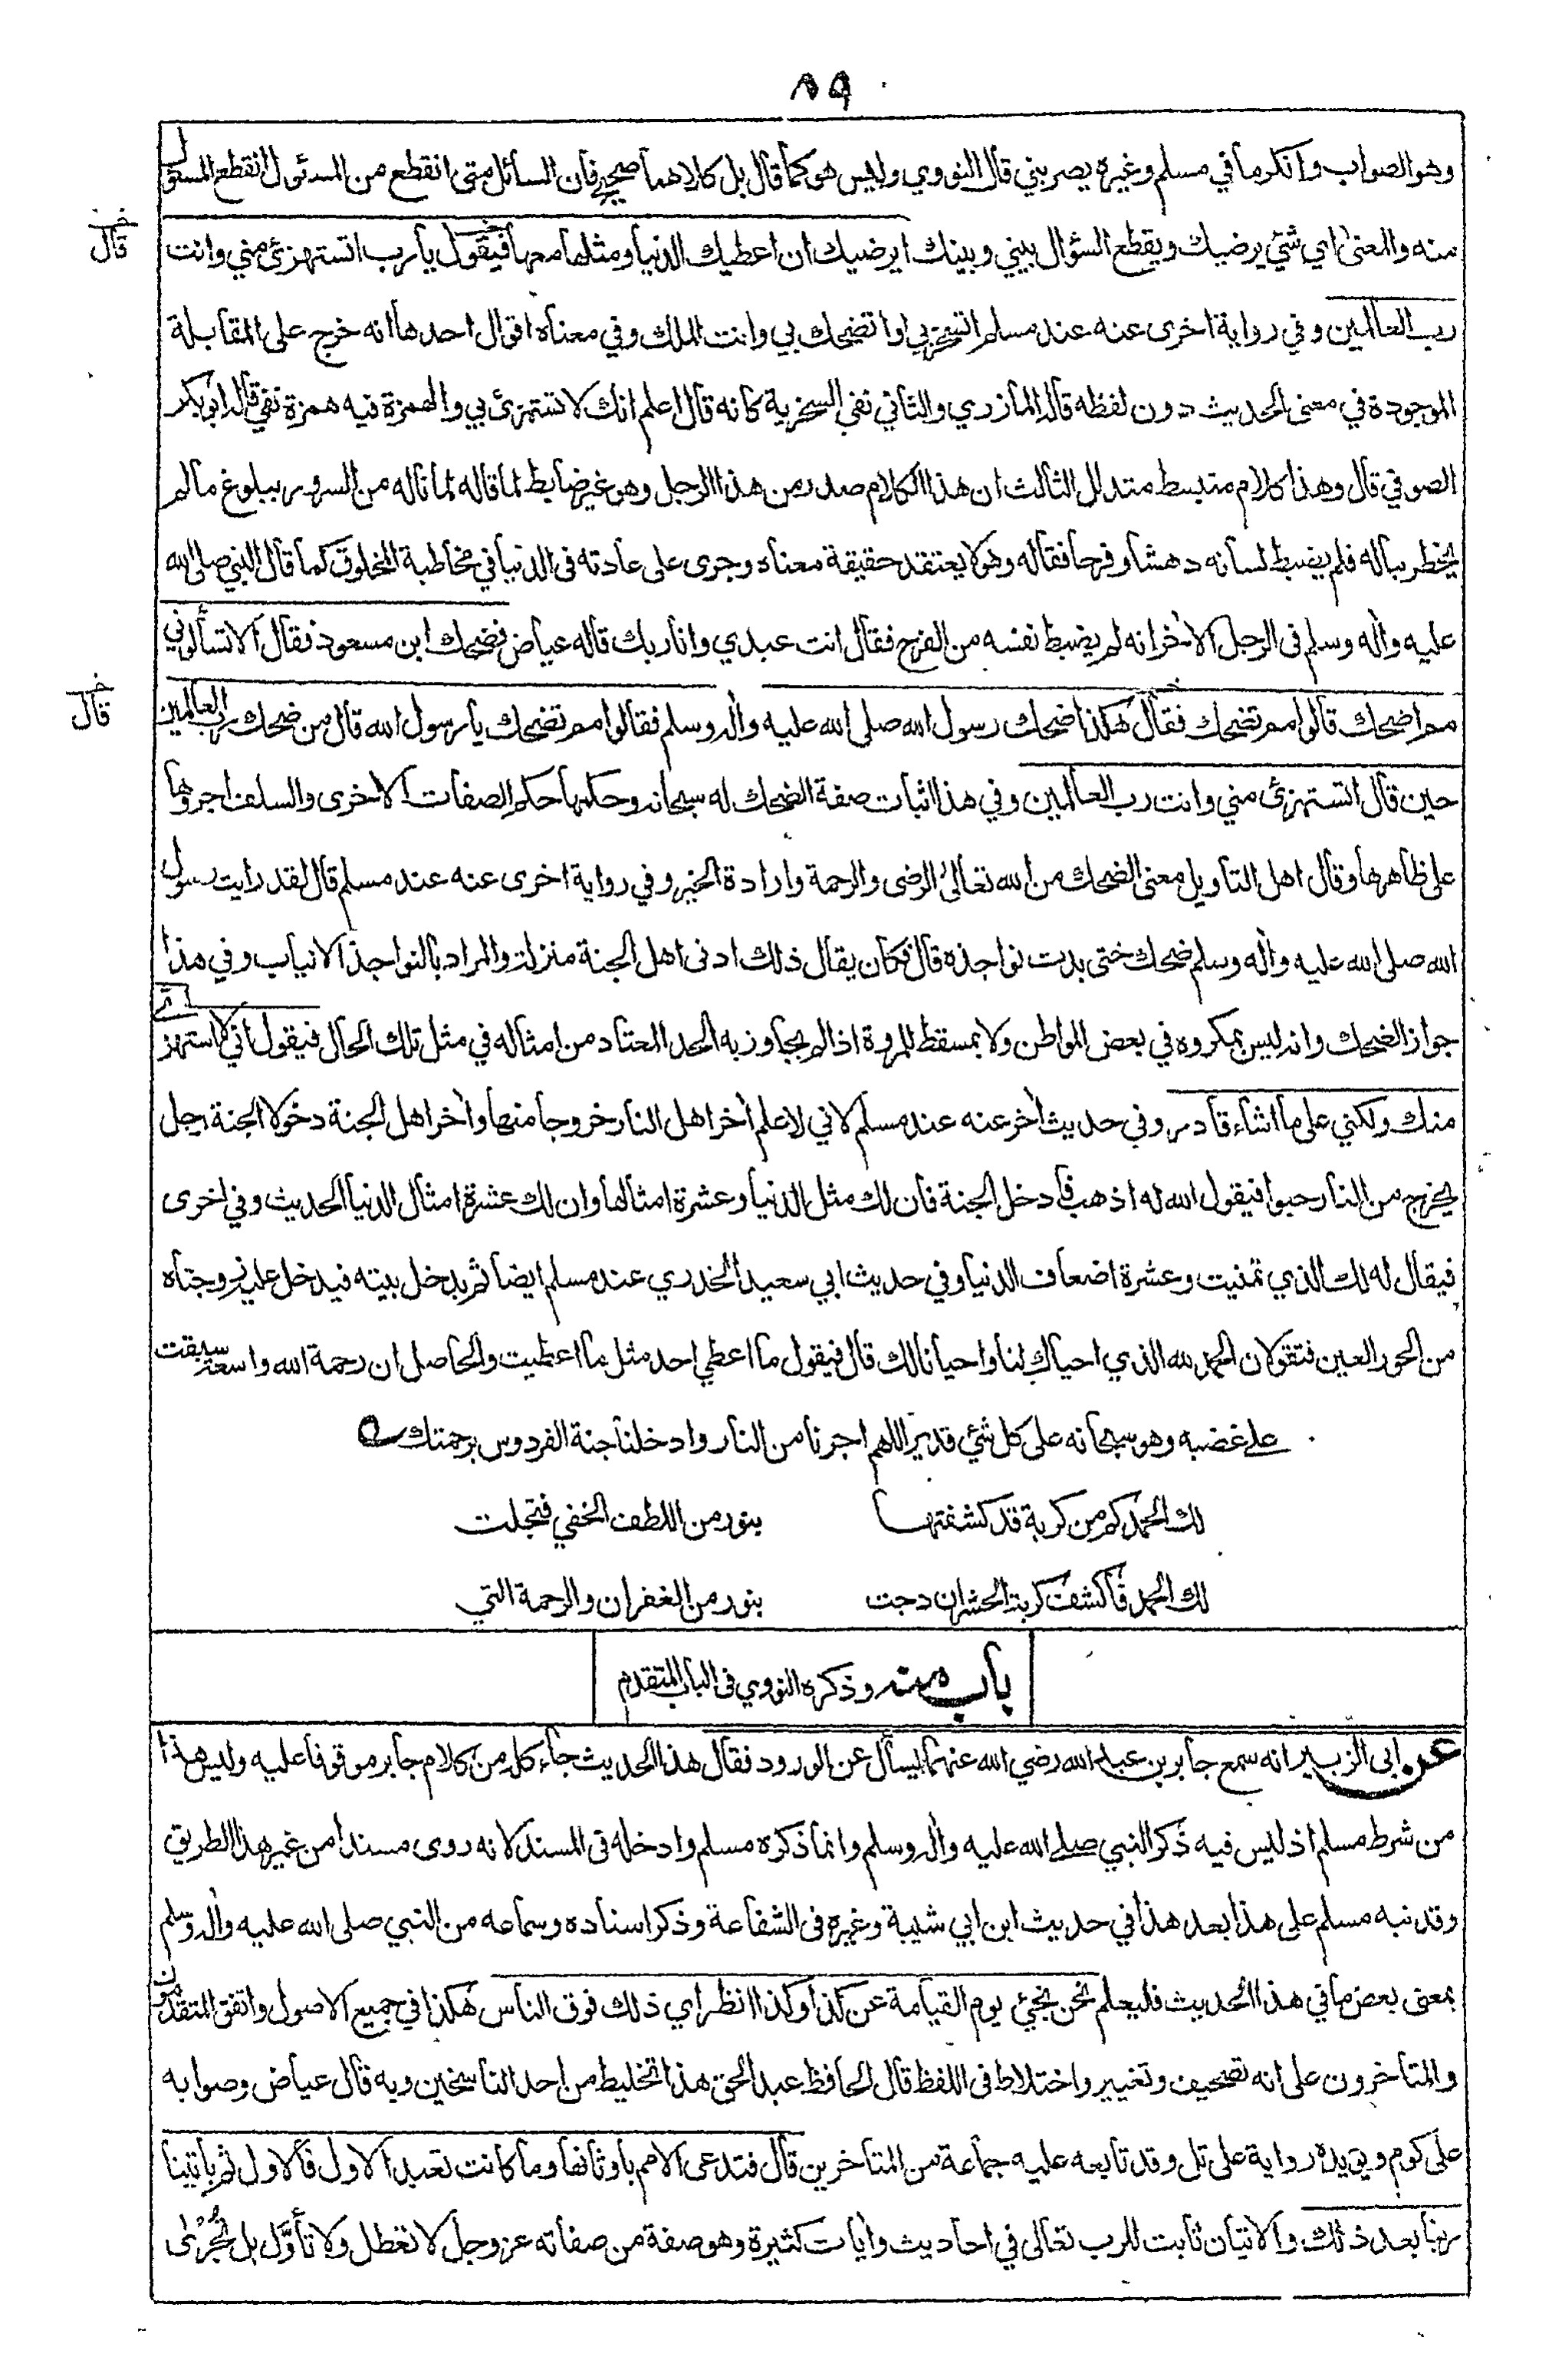 ٨٩
وهو الصواب وانكر ما في مسلم وغيره يصربني قال النووي وليس هو كما قال بل كلاهما صحيح فان السائل متى انقطع من المسئول انقطع المسئول
منه والمعنى اي شئ يرضيك ويقطع السؤال بيني وبينك ايرضيك ان اعطيك الدنيا ومثلها معها فيقول يا رب اتستهزئ مني وانت
خـ قال
رب العالمين وفي رواية اخرى عنه عند مسلم اتسخر بي او اتضحك بي وانت الملك وفي معناه اقوال احدها انه خرج على المقابلة
الموجودة في معنى الحديث دون لفظه قاله المازري والثاني نفي السخرية كانه قال اعلم انك لا تستهزئ بي والهمزة فيه همزة نفي قاله ابو بكر
الصوفي قال وهذا كلام منبسط متدلل الثالث ان هذا الكلام صدر من هذا الرجل وهو غير ضابط لما قاله لما ناله من السرور ببلوغ ما لم
يخطر بباله فلم يضبط لسانه دهشا وفرحا فقاله وهو لا يعتقد حقيقة معناه وجرى على عادته في الدنيا في مخاطبة المخلوق كما قال النبي صلى الله
عليه واله وسلم في الرجل الاخر انه لم يضبط نفسه من الفرح فقال انت عبدي وانا ربك قاله عياض فضحك ابن مسعود فقال الا تسألوني
مم اضحك قالوا مم تضحك فقال هكذا ضحك رسول الله صلى الله عليه واله وسلم فقالوا مم تضحك يا رسول الله قال من ضحك رب العالمين
خـ قال
حين قال اتستهزئ مني وانت رب العالمين وفي هذا اثبات صفة الضحك له سبحانه وحكمها حكم الصفات الاخرى والسلف اجروها
على ظاهرها وقال اهل التاويل معنى الضحك من الله تعالى الرضى والرحمة وارادة الخير وفي رواية اخرى عنه عند مسلم قال لقد رايت رسول
الله صلى الله عليه واله وسلم ضحك حتى بدت نواجذه قال فكان يقال ذلك ادنى اهل الجنة منزلة والمراد بالنواجذ الانياب وفي هذا
جواز الضحك وانه ليس بمكروه في بعض المواطن ولا بمسقط للمروة اذا لم يجاوز به الحد المعتاد من امثاله في مثل تلك الحال فيقول اني لا استهزئ
منك ولكني على ما اشاء قادر وفي حديث اخر عنه عند مسلم لاني لاعلم اخر اهل النار خروجا منها واخر اهل الجنة دخولا الجنة رجل
يخرج من النار حبوا فيقول الله له اذهب فادخل الجنة فان لك مثل الدنيا وعشرة امثالها وان لك عشرة امثال الدنيا الحديث وفي اخرى
فيقال له لك الذي تمنيت وعشرة اضعاف الدنيا وفي حديث ابي سعيد الخدري عند مسلم ايضا ثم يدخل بيته فيدخل عليه زوجتاه
من الحور العين فتقولان الحمد لله الذي احياك لنا واحيانا لك قال فيقول ما اعطي احد مثل ما اعطيت والحاصل ان رحمة الله واسعة سبقت
على غضبه وهو سبحانه على كل شئ قدير اللهم اجرنا من النار وادخلنا جنة الفردوس برحمتك
لك الحمد كم من كربة قد كشفتها بنور من اللطف الخفي فتجلت
لك الحمد فاكشف كربة الحشر ان دجت بنور من الغفران والرحمة التي
باب منه وذكره النووي في الباب المتقدم
عن ابي الزبير انه سمع جابر بن عبد الله رضي الله عنهما يسأل عن الورود فقال هذا الحديث جاء كله من كلام جابر موقوفا عليه وليس هذا
من شرط مسلم اذ ليس فيه ذكر النبي صلى الله عليه واله وسلم وانما ذكره مسلم وادخله في المسند لانه روى مسندا من غير هذا الطريق
وقد نبه مسلم على هذا بعد هذا في حديث ابن ابي شيبة وغيره في الشفاعة وذكر اسناده وسماعه من النبي صلى الله عليه واله وسلم
بمعنى بعض ما في هذا الحديث فليعلم نحن نجئ يوم القيامة عن كذا وكذا انظر اي ذلك فوق الناس هكذا في جميع الاصول واتفق المتقدمون
والمتاخرون على انه تصحيف وتغيير واختلاط في اللفظ قال الحافظ عبد الحق هذا تخليط من احد الناسخين وبه قال عياض وصوابه
على كوم ويؤيده رواية على تل وقد تابعه عليه جماعة من المتاخرين قال فتدعى الامم باوثانها وما كانت تعبد الاول فالاول ثم ياتينا
ربنا بعد ذلك والاتيان ثابت للرب تعالى في احاديث وايات كثيرة وهو صفة من صفاته عز وجل لا تعطل ولا تأوّل بل تُجْرٰى